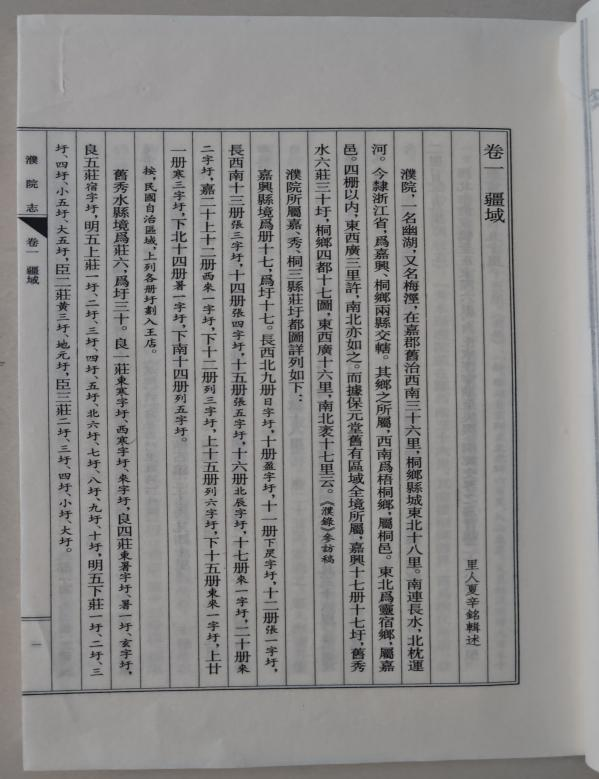 卷一　疆域
里人夏辛銘輯述
濮院，一名幽湖，又名梅涇，在嘉郡舊治西南三十六里，桐鄉縣城東北十八里。南連長水，北枕運
河。今隸浙江省，爲嘉興、桐鄉兩縣交轄。其鄉之所屬，西南爲梧桐鄉，屬桐邑。東北爲靈宿鄉，屬嘉
邑。四栅以内，東西廣三里許，南北亦如之。而據保元堂舊有區域全境所屬，嘉興十七册十七圩，舊秀
水六莊三十圩，桐鄉四都十七圖，東西廣十六里，南北袤十七里云。《濮錄》參訪稿
濮院所屬嘉、秀、桐三縣莊圩都圖詳列如下：
嘉興縣境爲册十七，爲圩十七。長西北九册日字圩，十册盈字圩，十一册下昃字圩，十二册張一字圩，
長西南十三册張三字圩，十四册張四字圩，十五册張五字圩，十六册北辰字圩，十七册來一字圩，二十册來
二字圩，嘉二十上十二册西來一字圩，下十二册列三字圩，上十五册列六字圩，下十五册東來一字圩，上廿
一册寒三字圩，下北十四册暑一字圩，下南十四册列五字圩。
按，民國自治區域，上列各册圩劃入王店。
舊秀水縣境爲莊六，爲圩三十。良一莊東寒字圩、西寒字圩、來字圩，良四莊東暑字圩、暑一圩、玄字圩，
良五莊宿字圩，明五上莊一圩、二圩、三圩、四圩、五圩、北六圩、七圩、八圩、九圩、十圩，明五下莊一圩、二圩、三
圩、四圩、小五圩、大五圩，臣二莊黄三圩、地元圩，臣三莊二圩、三圩、四圩、小圩、大圩。
濮院志　卷一　疆域
一